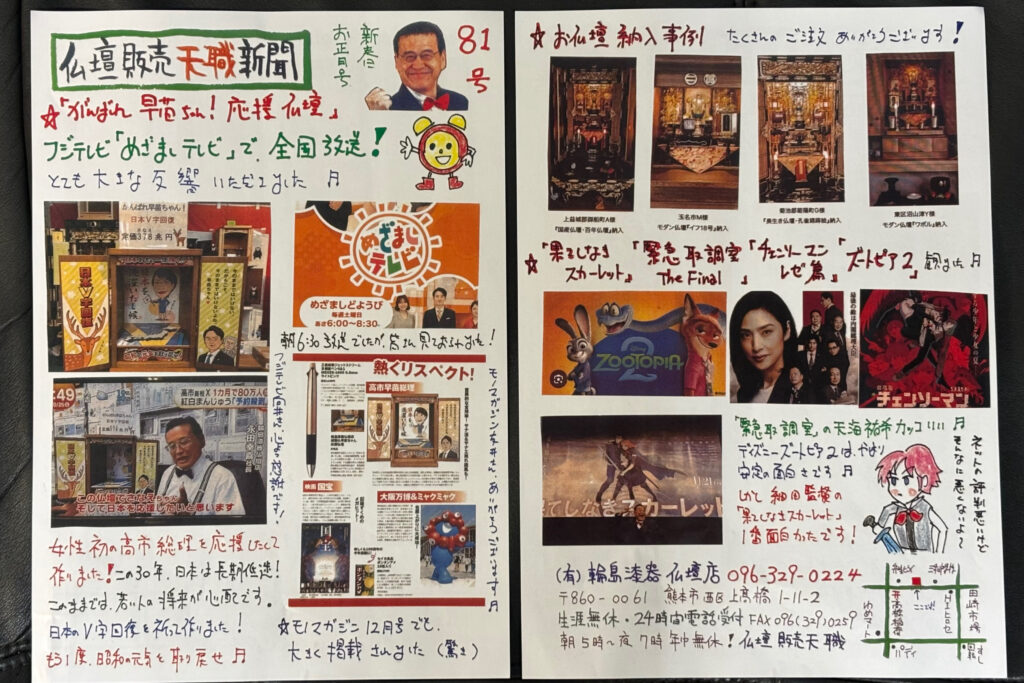 仏壇販売天職新聞
新春に
お正月号
81号
☆「がんばれ早苗ちゃん!応援仏壇」
フジテレビ「めざましテレビ」で、全国放送!
とても大きな反響いただきました♬
がんばれ早苗ちゃん!
日本V字回復
定価378兆円
日本V字回復
めざましテレビ
めざましどようび
毎週土曜日
あさ6:00〜8:30
朝6:30放送でしたが、皆さん見ておられました!
:49
高市首相X 1カ月で80万人
紅白まんじゅう「予約殺到」
永田幸喜社長
この仏壇でさなえちゃんと
そして日本を応援したいと思います
熱くリスペクト!
高市早苗総理
映画 国宝
大阪万博&ミャクミャク
国宝
モノマガジン桜井さん、ありがとうございます♬
女性初の高市総理を応援したくて
作りました!この30年、日本は長期低迷!
このままでは、若い人の将来が心配です。
日本のV字回復を祈って作りました!
もう1度、昭和の元気を取り戻せ♬
☆モノマガジン12月号でも、
大きく掲載されました(驚き)
☆お仏壇納入事例 たくさんのご注文ありがとうございます!
上益城郡御船町A様
「国産仏壇・百年仏壇」納入
玉名市M様
モダン仏壇「イフ18号」納入
菊池郡菊陽町G様
「長生き仏壇・孔雀錦蒔絵」納入
東区沼山津Y様
モダン仏壇「ワポル」納入
☆「果てしなきスカーレット」「緊急取調室 The Final」「チェンソーマン レゼ篇」「ズートピア2」観ました♬
ZOOTOPIA
2
チェンソーマン
果てしなきスカーレット
「緊急取調室」の天海祐希カッコいい!! ♬
ディズニーズートピア2は、やはり
安定の面白さです♬
しかし細田監督の
「果てしなきスカーレット」
1番面白かったです!
ネットの評判悪いけど
そんなに悪くないよ〜
(有)輪島漆器仏壇店 096-329-0224
〒860-0061 熊本市西区上高橋1-11-2
生涯無休・24時間電話受付 FAX096(329)0259
朝5時〜夜7時年中無休!仏壇販売天職
ここだよ!
高橋稲荷
田崎市場
ゆめマート